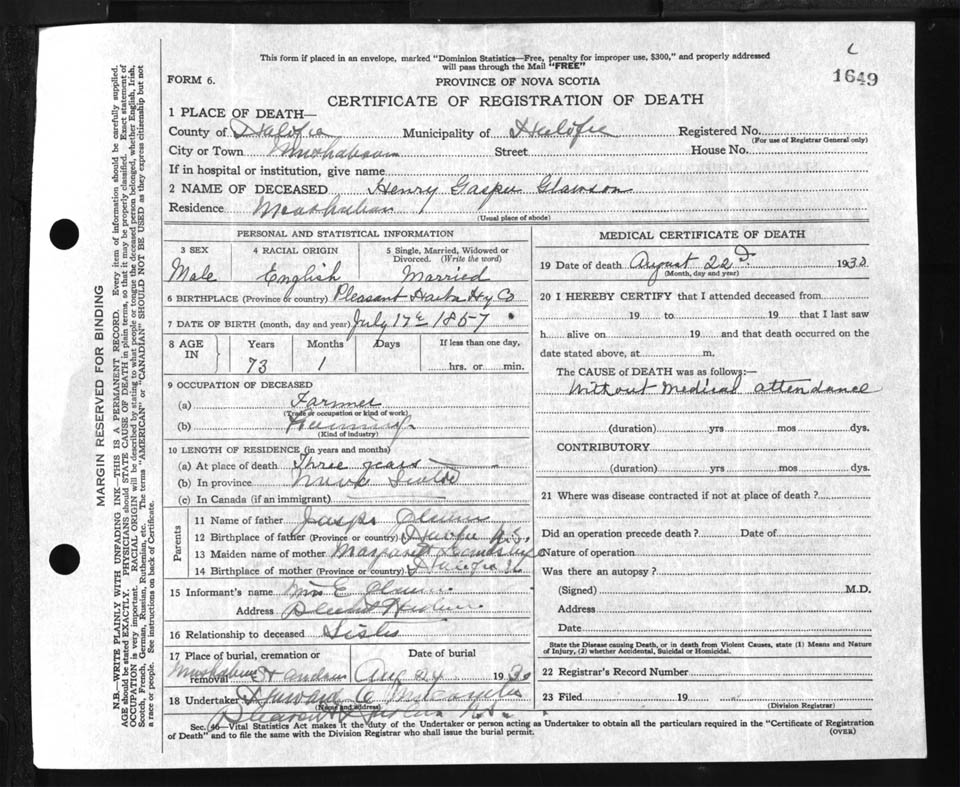 This form if placed in an envelope, marked "Dominion Statistics—Free, penalty for improper use, $300," and properly addressed
will pass through the Mail "FREE"
1649
FORM 6.
PROVINCE OF NOVA SCOTIA
CERTIFICATE OF REGISTRATION OF DEATH
1 PLACE OF DEATH—
County of Halifax Municipality of Halifax Registered No.
(For use of Registrar General only)
City or Town Street House No.
If in hospital or institution, give name
2 NAME OF DECEASED Henry Gasper Glawson
Residence
(Usual place of abode)
PERSONAL AND STATISTICAL INFORMATION
3 SEX 4 RACIAL ORIGIN 5 Single, Married, Widowed or Divorced. (Write the word)
Male English Married
6 BIRTHPLACE (Province or country) Pleasant Harbor Hfx Co
7 DATE OF BIRTH (month, day and year) July 17th 1857
8 AGE IN Years Months Days If less than one day,
73 1 hrs. or min.
9 OCCUPATION OF DECEASED
(a) Farmer
(Trade or occupation or kind of work)
(b) Farming
(Kind of industry)
10 LENGTH OF RESIDENCE (in years and months)
(a) At place of death Three years
(b) In province Nova Scotia
(c) In Canada (if an immigrant)
Parents
11 Name of father
12 Birthplace of father (Province or country) Halifax N.S.
13 Maiden name of mother Margaret
14 Birthplace of mother (Province or country) Halifax
15 Informant's name Mrs E
Address Pleasant Harbor
16 Relationship to deceased Sister
17 Place of burial, cremation or removal Date of burial
Aug 24 1930
18 Undertaker Howard
(Name and address)
N.S.
MEDICAL CERTIFICATE OF DEATH
19 Date of death August 22d 1930
(Month, day and year)
20 I HEREBY CERTIFY that I attended deceased from
19 to 19 that I last saw
h alive on 19 and that death occurred on the
date stated above, at m.
The CAUSE of DEATH was as follows:—
Without Medical attendance
(duration) yrs mos dys.
CONTRIBUTORY
(duration) yrs. mos dys.
21 Where was disease contracted if not at place of death?
Did an operation precede death? Date of
Nature of operation
Was there an autopsy?
(Signed) M.D.
Address
Date
State the Disease causing Death, or in death from Violent Causes, state (1) Means and Nature
of Injury, (2) whether Accidental, Suicidal or Homicidal.
22 Registrar's Record Number
23 Filed 19
(Division Registrar)
Sec. 46—Vital Statistics Act makes it the duty of the Undertaker or Person acting as Undertaker to obtain all the particulars required in the "Certificate of Registration
of Death" and to file the same with the Division Registrar who shall issue the burial permit.
(OVER)
MARGIN RESERVED FOR BINDING
N.B.—WRITE PLAINLY WITH UNFADING INK—THIS IS A PERMANENT RECORD. Every item of information should be carefully supplied.
AGE should be stated EXACTLY. PHYSICIANS should STATE CAUSE OF DEATH in plain terms, so that it may be properly classified. Exact statement of
OCCUPATION is very important. RACIAL ORIGIN will be described by stating to what people or tongue the deceased person belonged, whether English, Irish,
Scotch, French, German, Russian, Ruthenian, etc. The terms "AMERICAN" or "CANADIAN" SHOULD NOT BE USED as they express citizenship but not
a race or people. See instructions on back of Certificate.